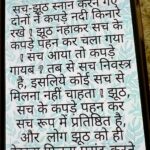 सच-झूठ स्नान करने गए
दोनों ने कपड़े नदी किनारे
रखे ! झूठ नहाकर सच के
कपड़े पहन कर चला गया
! सच आया तो कपड़े
गायब ? तब से सच निवस्त्र
है, इसलिये कोई सच से
मिलना नहीं चाहता ! झूठ,
सच के कपड़े पहन कर
सच रूप में प्रतिष्ठित है,
और लोग झूठ को ही